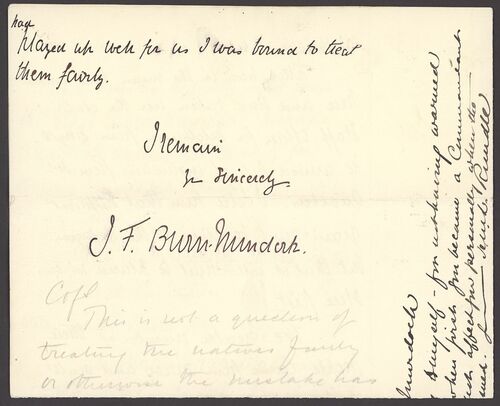 had
played up well for us I was bound to treat
them fairly.
I remain
Yrs Sincerely
J. F. Burn Murdoch.
This is not a question of
treating the natives fairly
or otherwise the mistake has
Murdoch
myself - for nothing warned
when first you became a Commandant
affect you personally when the
Rundle